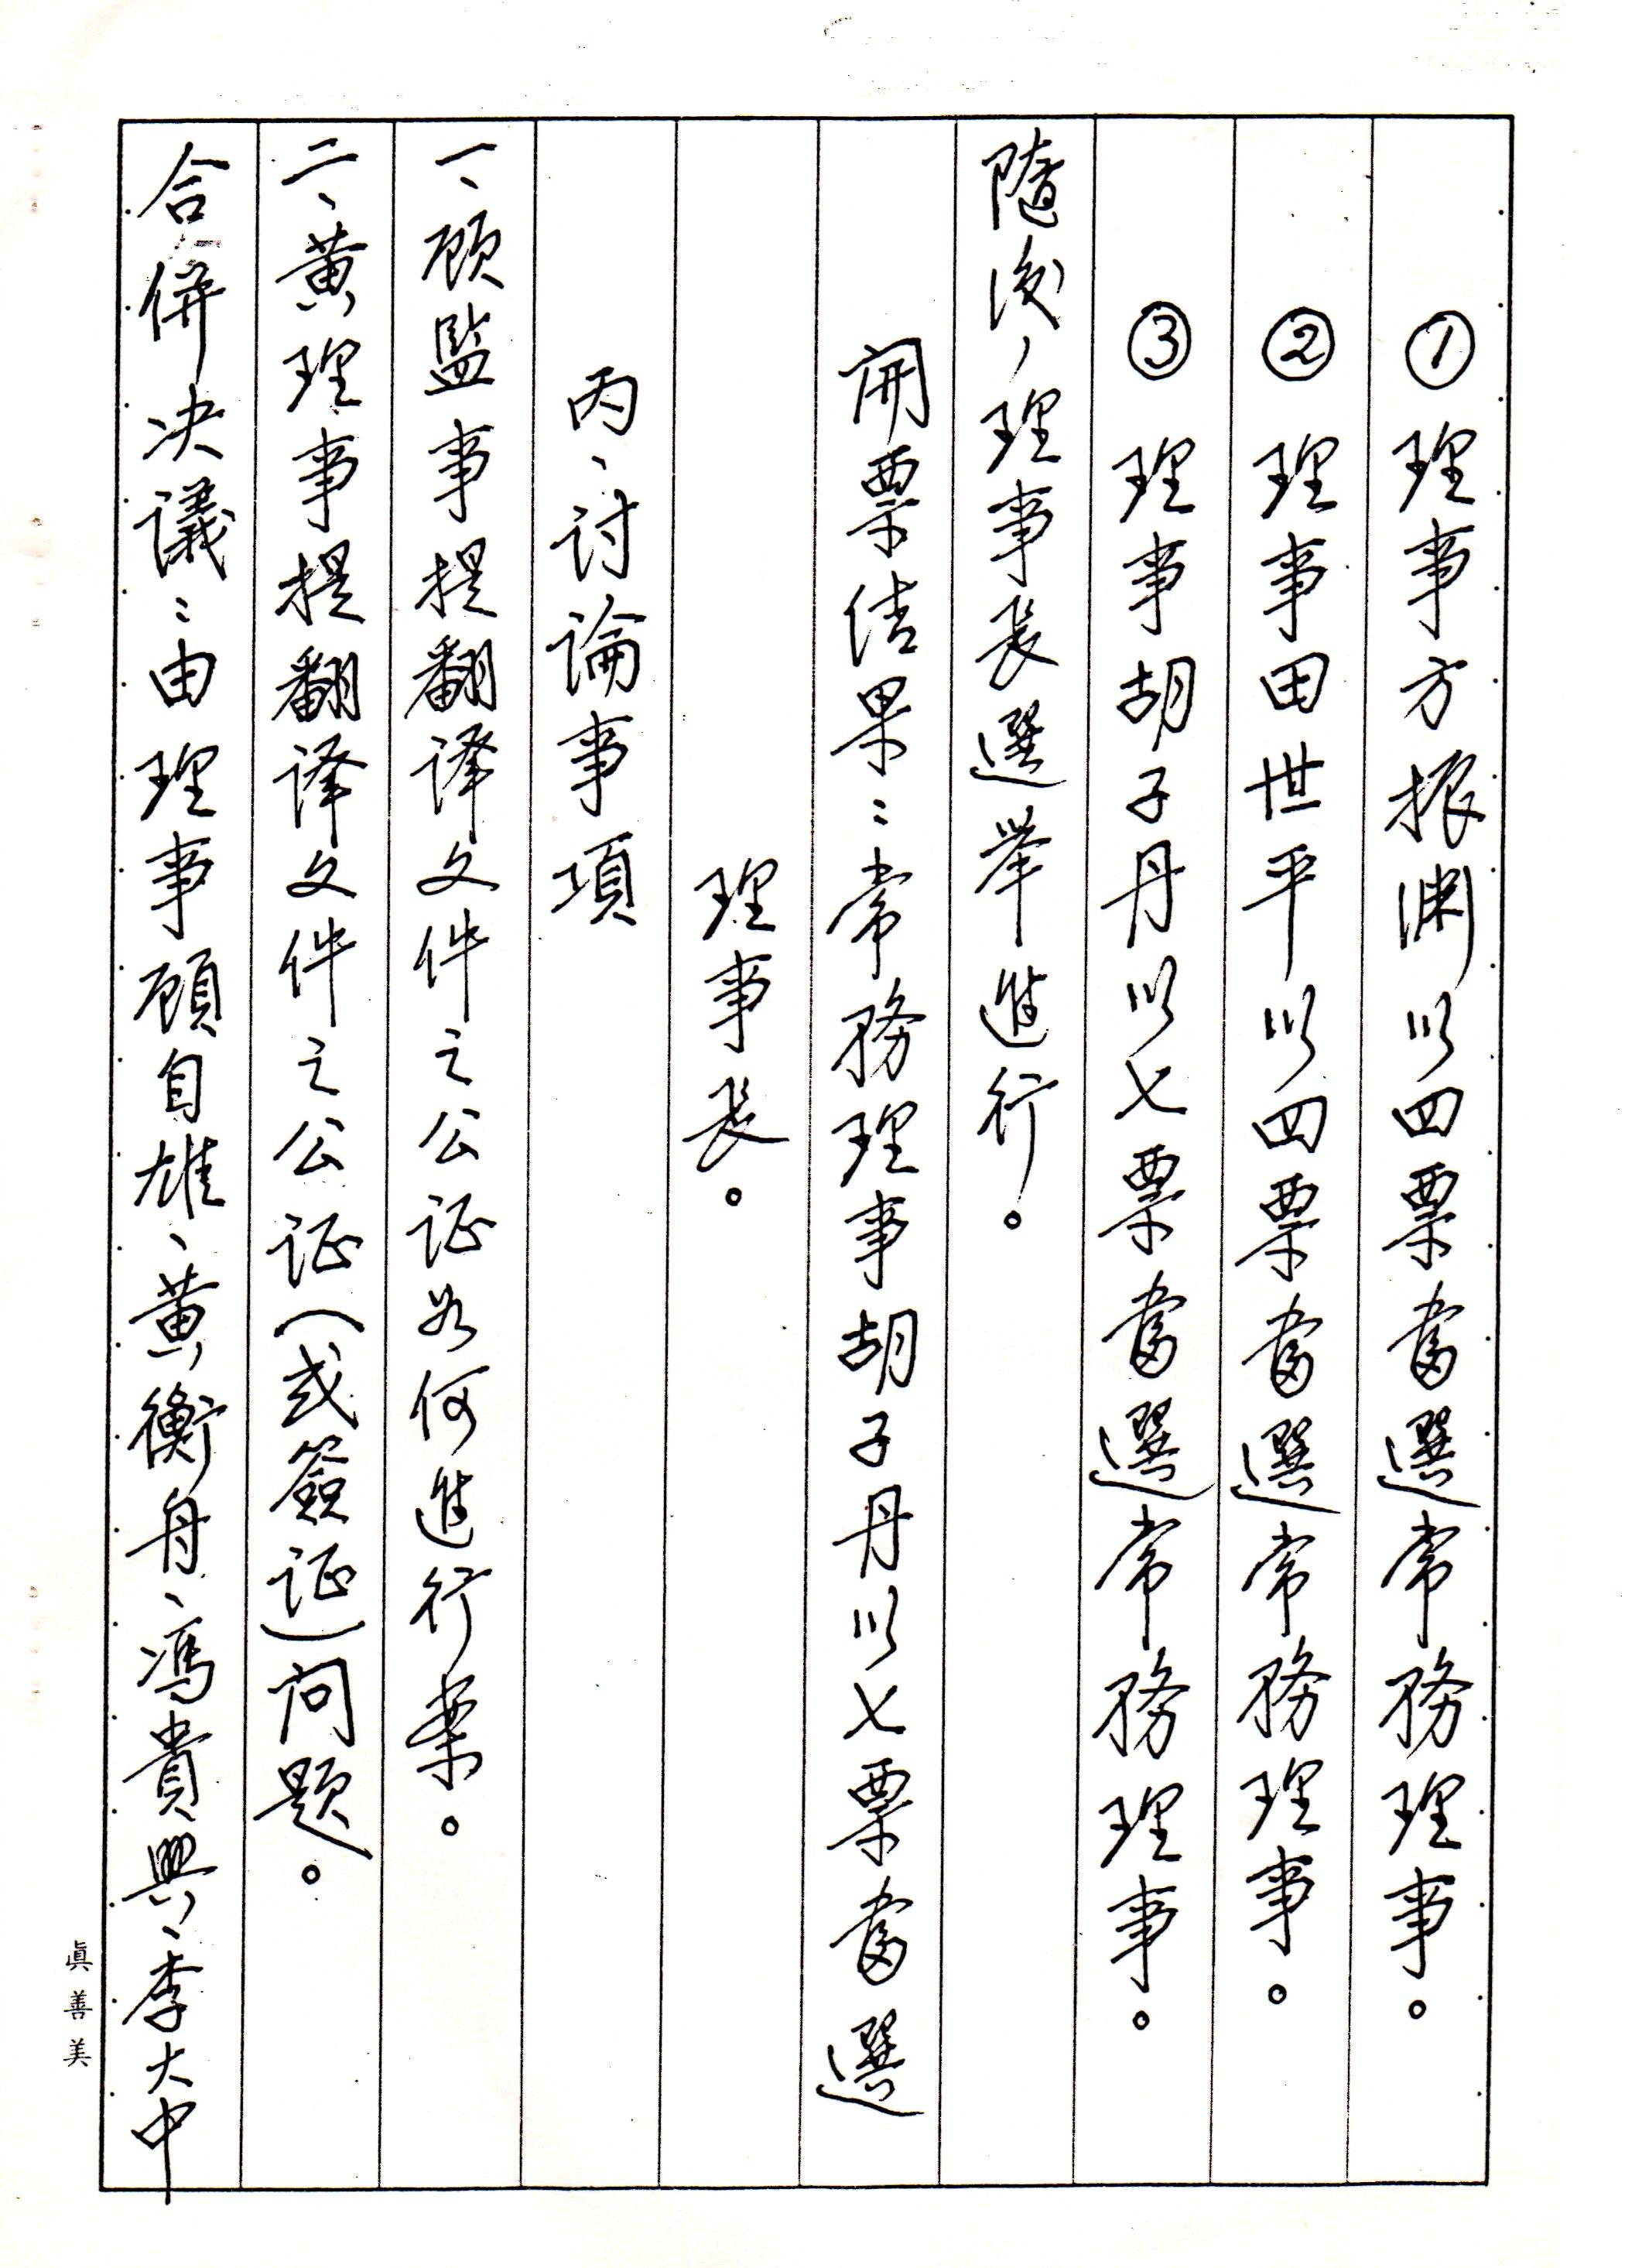 ①理事方振渊以四票當選常務理事。
②理事田世平以四票當選常務理事。
③理事胡子丹以七票當選常務理事。
隨後，理事長選举進行。
開票结果：常務理事胡子丹以七票當選
理事長。
丙、討論事項
一、顾監事提翻译文件之公证如何進行案。
二、黄理事提翻译文件之公证（或簽证）问题。
合併决議：由理事顧自雄、黄衡舟、馮貴興、李大中
眞善美